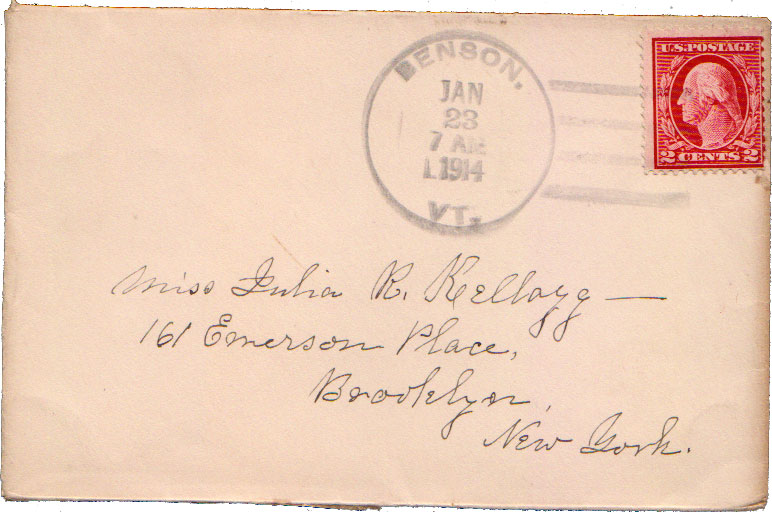 BENSON.
JAN
23
7 AM
1914
VT.
U.S. POSTAGE
2 CENTS 2
Miss Julia R. Kellogg —
161 Emerson Place,
Brooklyn,
New York.